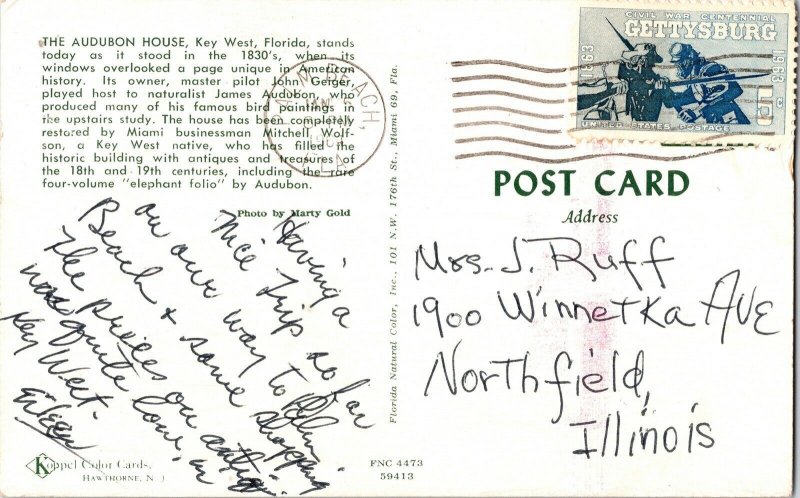 THE AUDUBON HOUSE, Key West, Florida, stands
today as it stood in the 1830's, when its
windows overlooked a page unique in American
history. Its owner, master pilot John Geiger,
played host to naturalist James Audubon, who
produced many of his famous bird paintings in
the upstairs study. The house has been completely
restored by Miami businessman Mitchell Wolf-
son, a Key West native, who has filled the
historic building with antiques and treasures of
the 18th and 19th centuries, including the rare
four-volume "elephant folio" by Audubon.
Photo by Marty Gold
Having a
nice trip so far
on our way to Palm
Beach & some shopping
The prices on
was quite low, in
Key West.
Eileen
Koppel Color Cards,
HAWTHORNE, N. J.
Florida Natural Color, Inc., 101 N.W. 176th St., Miami 69, Fla.
FNC 4473
59413
BEACH,
JAN
CIVIL WAR CENTENNIAL
GETTYSBURG
1863
1963
5c
UNITED STATES POSTAGE
POST CARD
Address
Mrs. J. Ruff
1900 Winnetka AVE
Northfield,
Illinois